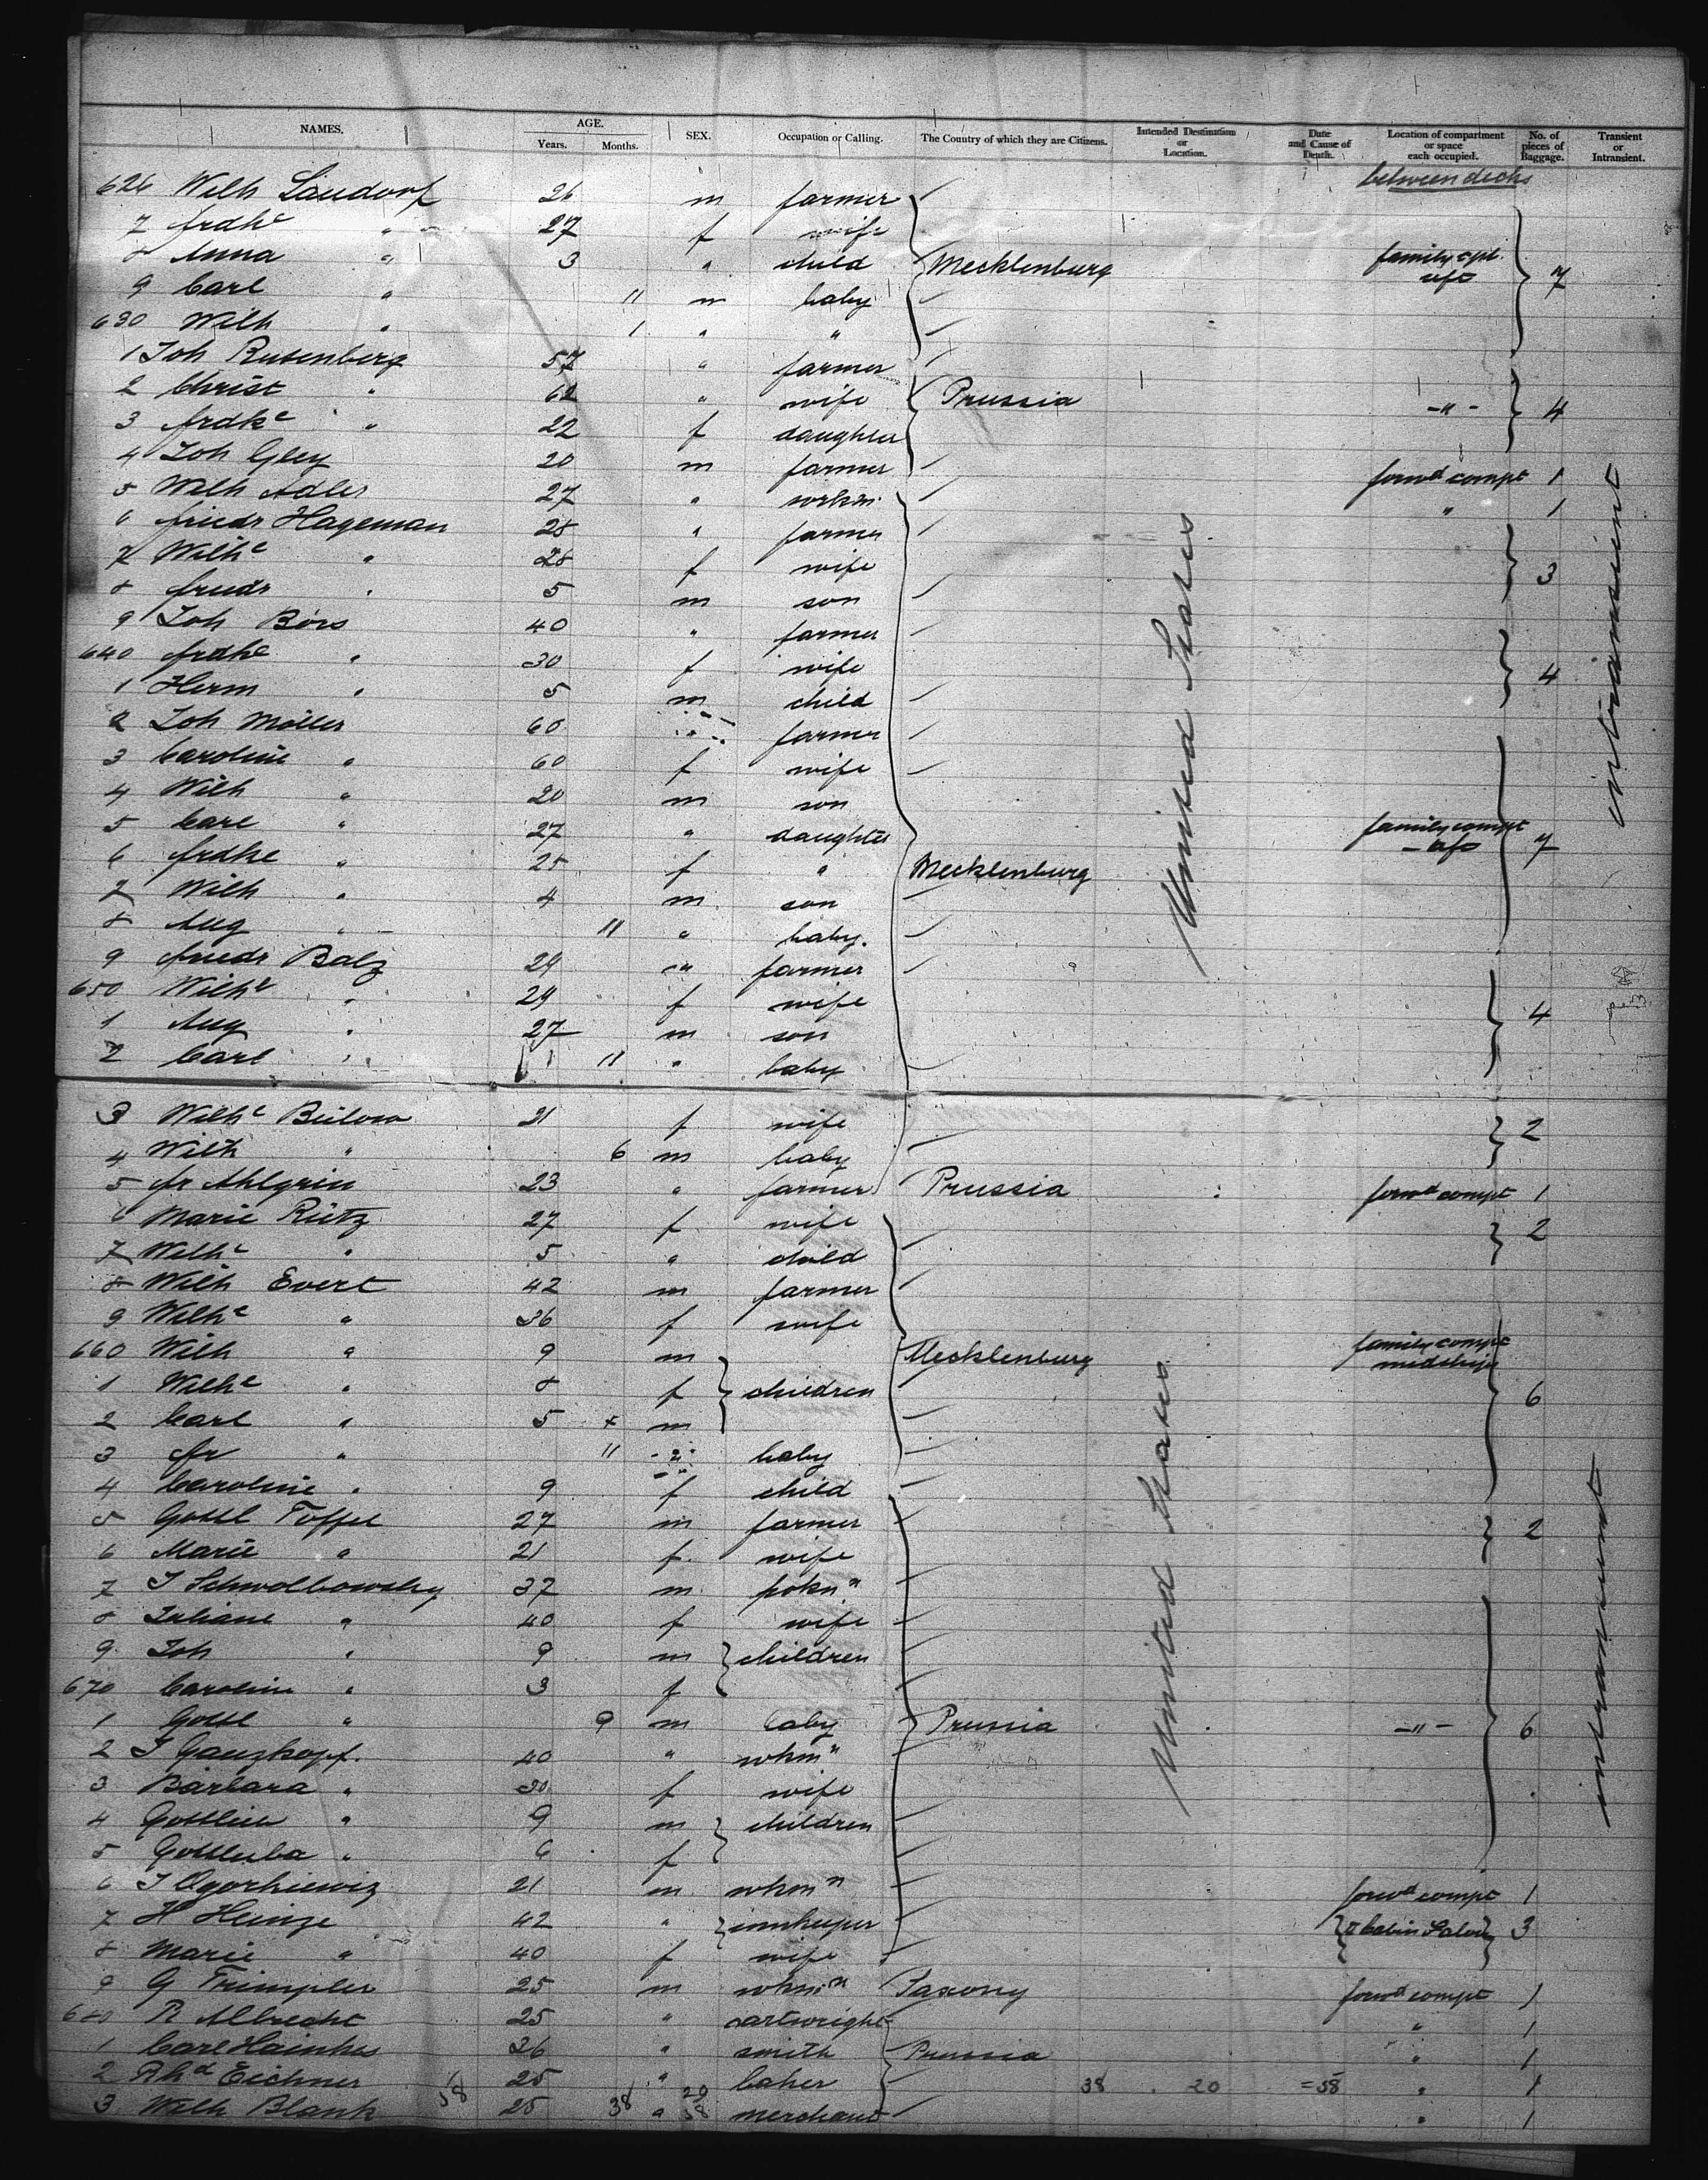 NAMES. AGE. Years. Months. SEX. Occupation or Calling. The Country of which they are Citizens. Intended Destination or Location. Date and Cause of Death. Location of compartment or space each occupied. No. of pieces of Baggage. Transient or Intransient.
between decks
626 Wilh Laudorf 26 m farmer
7 frdke " 27 f wife
8 Anna " 3 " child Mecklenburg family cpt. aft 7
9 Carl " 11 m baby
630 Wilh " 1 " "
1 Joh Rusenberg 57 " farmer
2 Christ " 62 " wife Prussia -"- 4
3 frdke " 22 f daughter
4 Joh Gley 20 m farmer forwd compt 1
5 Wilh Adler 27 " wrkm " 1
6 friedr Hageman 28 " farmer
7 Wilhe " 28 f wife 3
8 friedr " 5 m son
9 Joh Börs 40 " farmer
640 frdke " 30 f wife 4
1 Herm " 5 m child
2 Joh Möller 60 " farmer
3 Caroline " 60 f wife
4 Wilh " 20 m son
5 Carl " 27 " daughter family compt aft 7
6 frdke " 25 f " Mecklenburg
7 Wilh " 4 m son
8 Aug " 11 " baby.
9 friedr Balz 29 " farmer
650 Wilhe " 29 f wife 4
1 Aug " 27 m son
2 Carl " 11 " baby
3 Wilhe Bülow 21 f wife 2
4 Wilh " 6 m baby
5 fr Ahlgrin 23 " farmer Prussia forwd compt 1
6 Marie Rütz 27 f wife 2
7 Wilhe " 5 " child
8 Wilh Evert 42 m farmer
9 Wilhe " 36 f wife
660 Wilh " 9 m Mecklenburg family compt midships
1 Wilhe " 8 f children 6
2 Carl " 5 m
3 fr " 11 " baby
4 Caroline " 9 f child
5 Gottl Toffel 27 m farmer 2
6 Marie " 21 f wife
7 J Schwolbowsky 37 m
8 Juliane " 40 f wife
9 Joh " 9 m children
670 Caroline " 3 f
1 Gottl " 9 m baby Prussia -"- 6
2 J Ganzkopf. 40 " wkmn
3 Barbara " 30 f wife
4 Gottlieb " 9 m children
5 Gottlieba " 6 f
6 J Ogorkiewiz 21 m wkmn forwd compt 1
7 H Heinze 42 " innkeeper 3
8 Marie " 40 f wife
9 G Trimpler 25 m wkmn Saxony forwd compt 1
680 R Albrecht 25 " cartwright " 1
1 Carl Hainkes 36 " smith Prussia " 1
2 Rhd Eichner 25 " baker 38 20 =58 " 1
3 Wilh Blank 58 25 38 " 20 58 merchant " 1
United States
United States
intransient
intransient